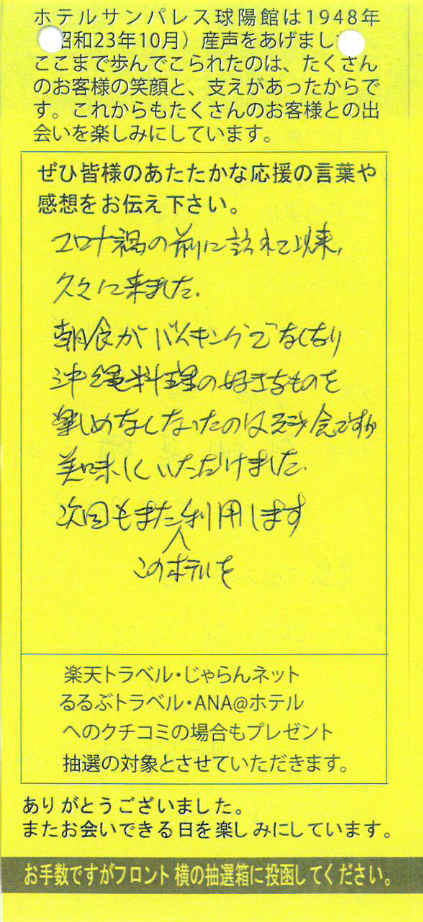 ホテルサンパレス球陽館は1948年
昭和23年10月）産声をあげまし
ここまで歩んでこられたのは、たくさん
のお客様の笑顔と、支えがあったからで
す。これからもたくさんのお客様との出
会いを楽しみにしています。
ぜひ皆様のあたたかな応援の言葉や
感想をお伝え下さい。
コロナ禍の前に訪れて以来、
久々に来ました。
朝食がバイキングでなくなり
沖縄料理の好きなものを
楽しめなくなったのは残念ですが
美味しくいただけました。
次回もまた利用します
このホテルを
楽天トラベル・じゃらんネット
るるぶトラベル・ANA@ホテル
へのクチコミの場合もプレゼント
抽選の対象とさせていただきます。
ありがとうございました。
またお会いできる日を楽しみにしています。
お手数ですがフロント横の抽選箱に投函してください。